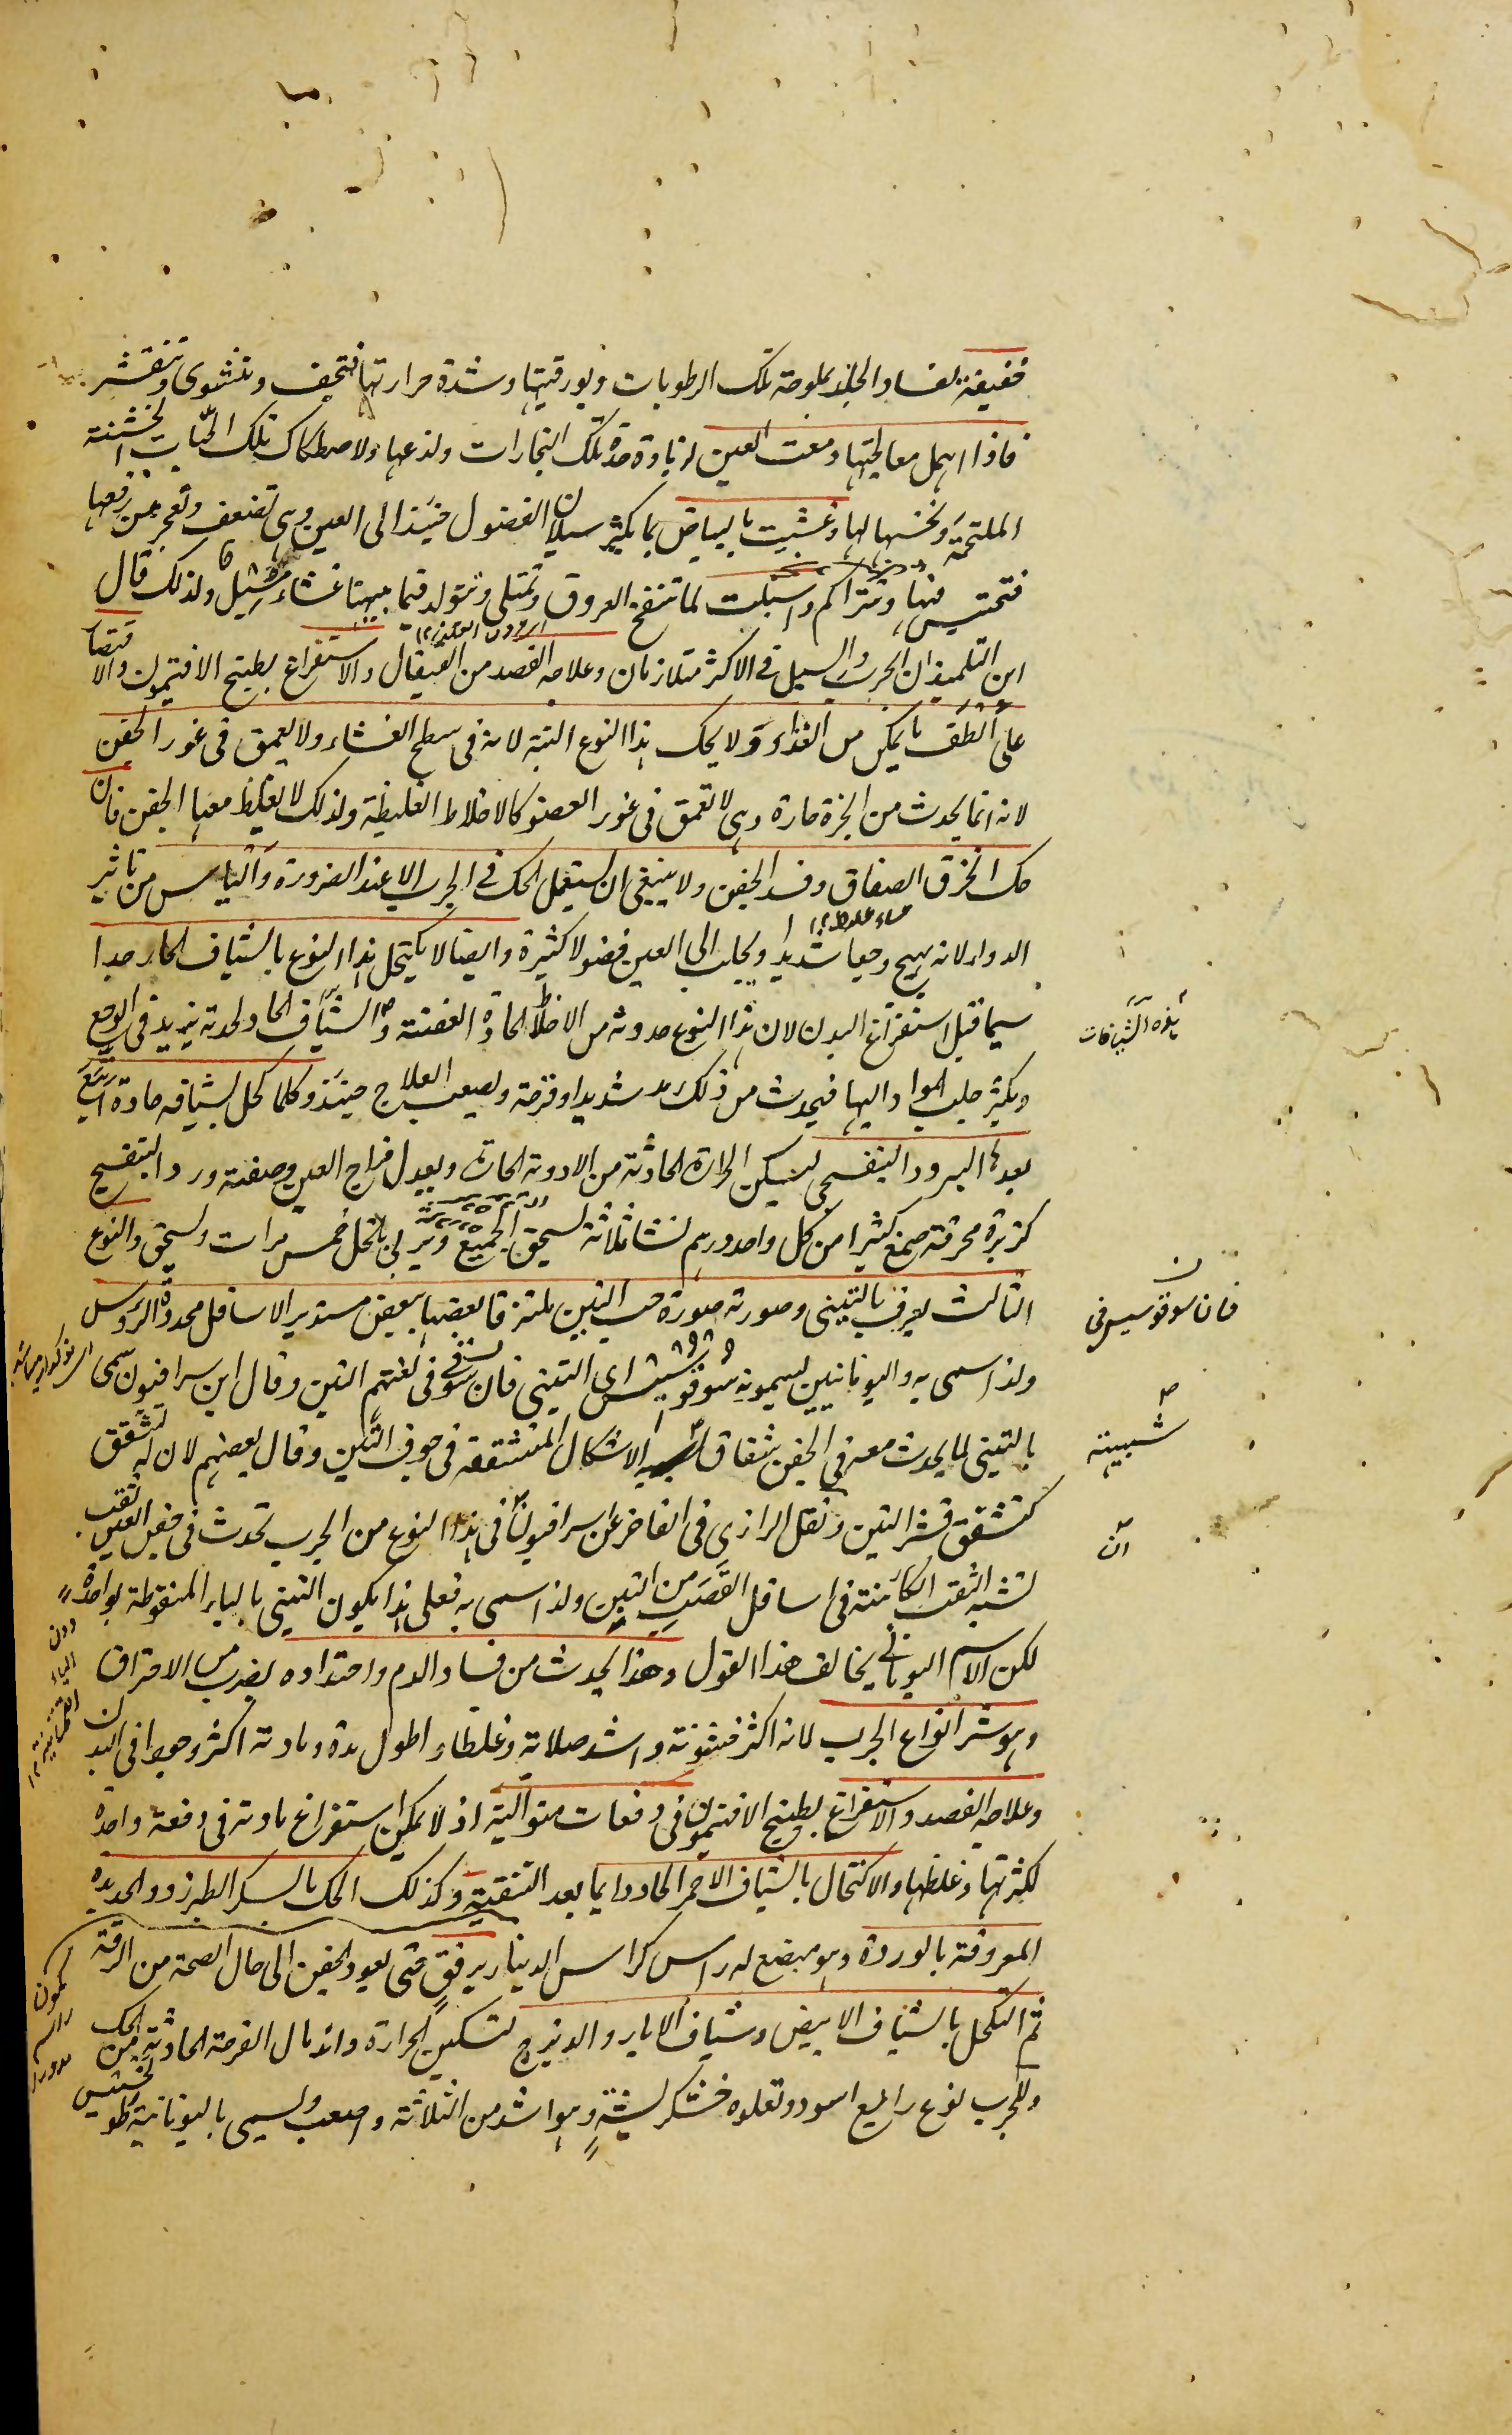 خفيفة لفساد الجلد بملوحة تلك الرطوبات وبورقيتها وشدة حرارتها فتجف وتنشوى وتتقشر
فاذا اهمل معالجتها دمعت العين لزيادة حدة تلك البخارات ولذعها ولاصطكاك تلك الحبات الخشنة
الملتحمة ونخسها لها وغشيت بالبياض بما يكثر سيلان الفضول حينئذ الى العين وهى تضعف وتعجز عن دفعها
فتحتبس فيها وتتراكم واسبلت لما تنتفخ العروق وتمتلى ويتولد فيما بينها غشاء ولذلك قال
ابن التلميذ ان الجرب والسبل فى الاكثر متلازمان وعلاجه الفصد من القيفال والاستفراغ بطبيخ الافتيمون والاقتصار
على الطف ما يمكن من الغذاء ولا يحك هذا النوع البتة لانه فى سطح الغشاء ولا يعمق فى غور الجفن
لانه انما يحدث من ابخرة حارة وهى لا تعمق فى غور العضو كالاخلاط الغليظة ولذلك لا يغلظ معها الجفن فان
حك انخرق الصفاق وفسد الجفن ولا ينبغى ان يستعمل الحك فى الجرب الا عند الضرورة والياس من تاثير
الدواء لانه يهيج وجعا شديدا ويجلب الى العين فضولا كثيرة وايضا لا يكتحل هذا النوع بالشياف الحار جدا
سيما قبل استفراغ البدن لان هذا النوع حدوثه من الاخلاط الحادة العفنة والشياف الحاد لحدته يزيد فى الوجع
ويكثر جلب المواد اليها فيحدث من ذلك شديدا وقرحة ويصعب العلاج حينئذ وكلما كحل بشيافه حادة اتبع
بعدها البرود البنفسجى ليسكن الحرارة الحادثة من الادوية الحادة ويعدل مزاج العين وصفته ورد البنفسج
كزبرة محرقة صمغ كثيرا من كل واحد درهم نشا ثلاثة يسحق الجميع ويربى بالخل خمس مرات ويسحق والنوع
الثالث يعرف بالتينى وصورته صورة حب التين ملتزقا بعضها ببعض مستدير الاسافل محددة الروس
ولذا سمى به واليونانيين يسمونه سوقوسيس اى التينى فان سوقى فى لغتهم التين وقال ابن سرافيون سمى
بالتينى لما يحدث معه فى الجفن شقاق شبيه الاشكال المتشققة فى جوف التين وقال بعضهم لان له تشقق
كتشقق قشر التين ونقل الرازى فى الفاخر عن سرافيون فى هذا النوع من الجرب تحدث فى جفن العين ثقب
تشبه الثقب الكائنة فى اسافل القصب من التبن ولذا سمى به فعلى هذا يكون التبنى بالباء المنقوطة بواحدة
لكن الاسم اليونانى يخالف هذا القول وهذا يحدث من فساد الدم واحتداده بضرب من الاحتراق
وهو شر انواع الجرب لانه اكثر خشونة واشد صلابة وغلظا واطول مدة ومادته اكثر وجودا فى البدن
وعلاجه الفصد والاستفراغ بطبيخ الافتيمون فى دفعات متوالية اذ لا يمكن استفراغ مادته فى دفعة واحدة
لكثرتها وغلظها والاكتحال بالشياف الاحمر الحاد دايما بعد التنقية وكذلك الحك بالسكر الطبرزد والحديدة
المعروفة بالوردة وهو مبضع له راس كراس الدينار برفق حتى يعود الجفن الى حال الصحة من الرقة
ثم التكحل بالشياف الابيض وشياف الابار والديزج لتسكين الحرارة واندمال القرحة الحادثة من الحك
وللجرب نوع رابع اسود وتعلوه خشكريشة وهو اشد من الثلاثة واصعب ويسمى بالیونانية
بهذه الشيافات
فان سوقوسيس فى
شبيهة
ان
دون
الياء